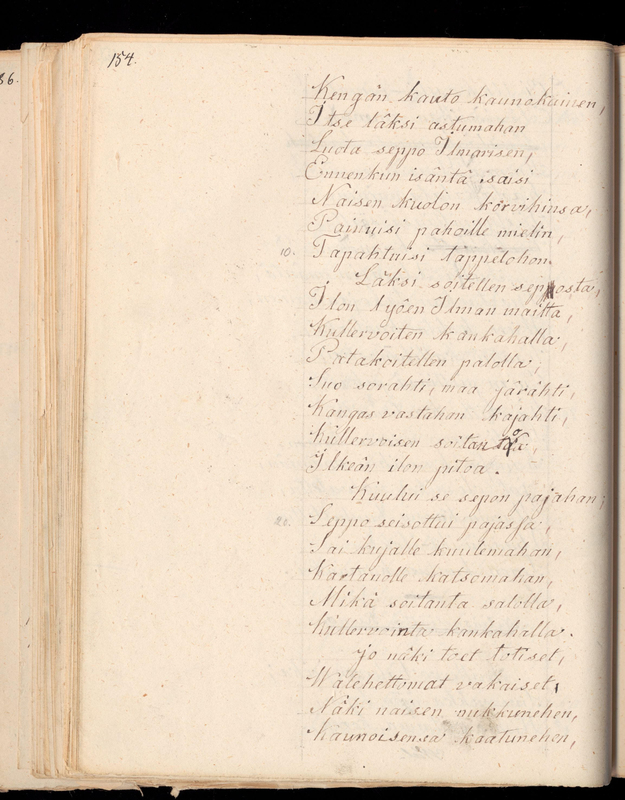 36.
154.
Kengän kauto kaunokainen,
Itse läksi astumahan
Luota seppo Ilmarisen,
Ennenkun isäntä saisi
Naisen kuolon korvihinsa,
Painuisi pahoille mielin,
10. Tapahtuisi täppelöhön.
Läksi soitellen seposta,
Ilon lyöen Ilman maitta,
Kullervoiten kankahalla,
Patakoitellen palolla,
Suo sorahti, maa järähti,
Kangas vastahan kajahti,
Kullervoisen soitan
Ilkeän ilon pitoa.
Kuului se sepon pajahan;
20. Seppo seisottui pajassa,
Sai kujalle kuulemahan,
Kartanolle katsomahan,
Mikä soitanta salolla,
Kullervointa kankahalla.
Jo näki toet totiset,
Walehettomat vakaiset,
Näki naisen nukkunehen,
Kaunoisensa kaatunehen,